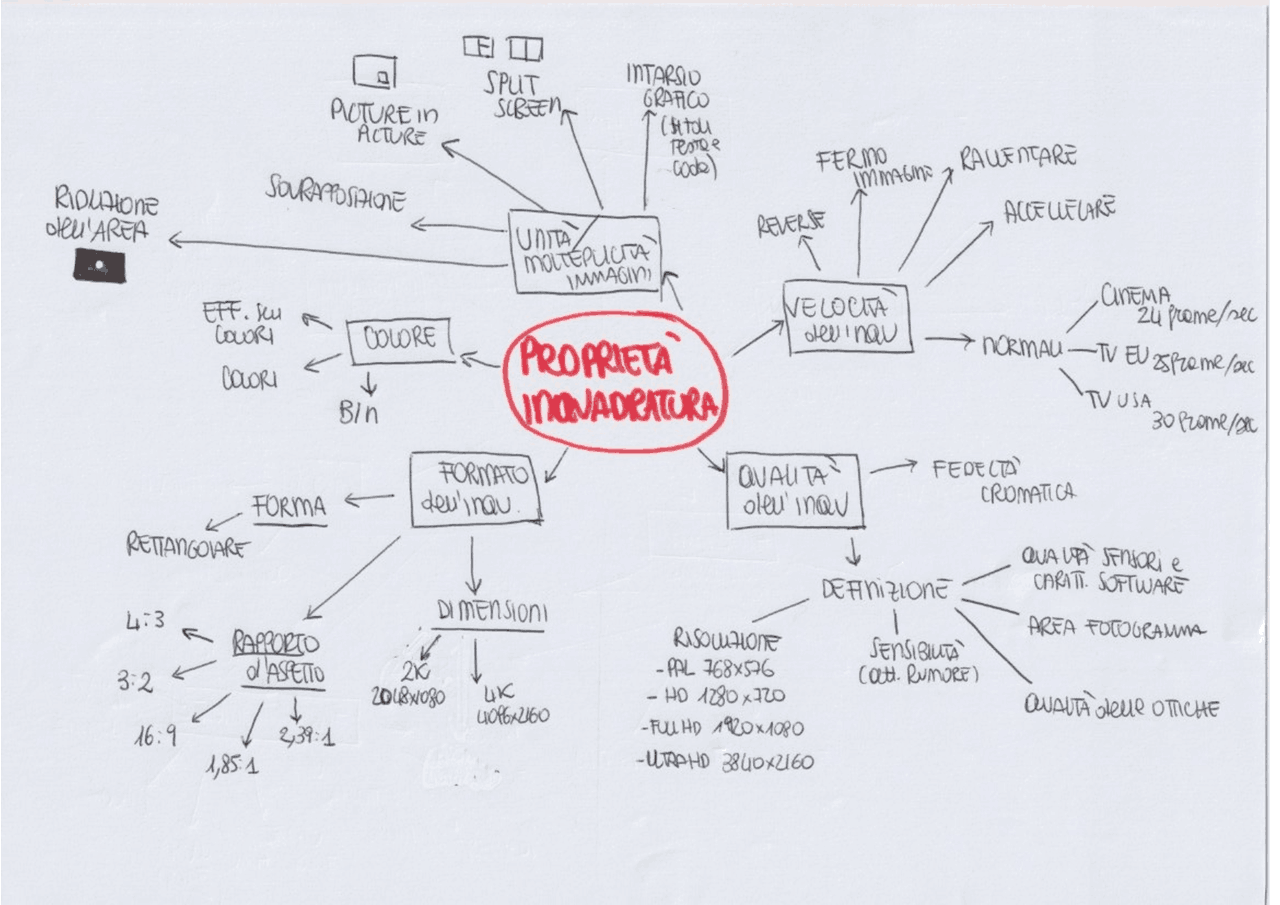 PROPRIETÀ
INQUADRATURA
UNITÀ
MOLTEPLICITÀ
IMMAGINI
RIDUZIONE
dell'AREA
SOVRAPPOSIZIONE
PICTURE in
PICTURE
SPLIT
SCREEN
INTARSIO
GRAFICO
(titoli
testa e
coda)
VELOCITÀ
dell'inqu
REVERSE
FERMO
IMMAGINE
RALLENTARE
ACCELLELARE
NORMALI
CINEMA
24 frame/sec
TV EU 25 frame/sec
TV USA
30 frame/sec
QUALITÀ
dell'inqu
FEDELTÀ
CROMATICA
DEFINIZIONE
QUALITÀ SENSORI e
CARATT. SOFTWARE
AREA FOTOGRAMMA
QUALITÀ delle OTTICHE
SENSIBILITÀ
(att. RUMORE)
RISOLUZIONE
- PAL 768x576
- HD 1280x720
- FULL HD 1920x1080
- ULTRA HD 3840x2160
FORMATO
dell'inqu.
FORMA
RETTANGOLARE
DIMENSIONI
2K
2048x1080
4K
4096x2160
RAPPORTO
d'ASPETTO
4:3
3:2
16:9
1,85:1
2,39:1
COLORE
EFF. sui
COLORI
COLORI
B/n